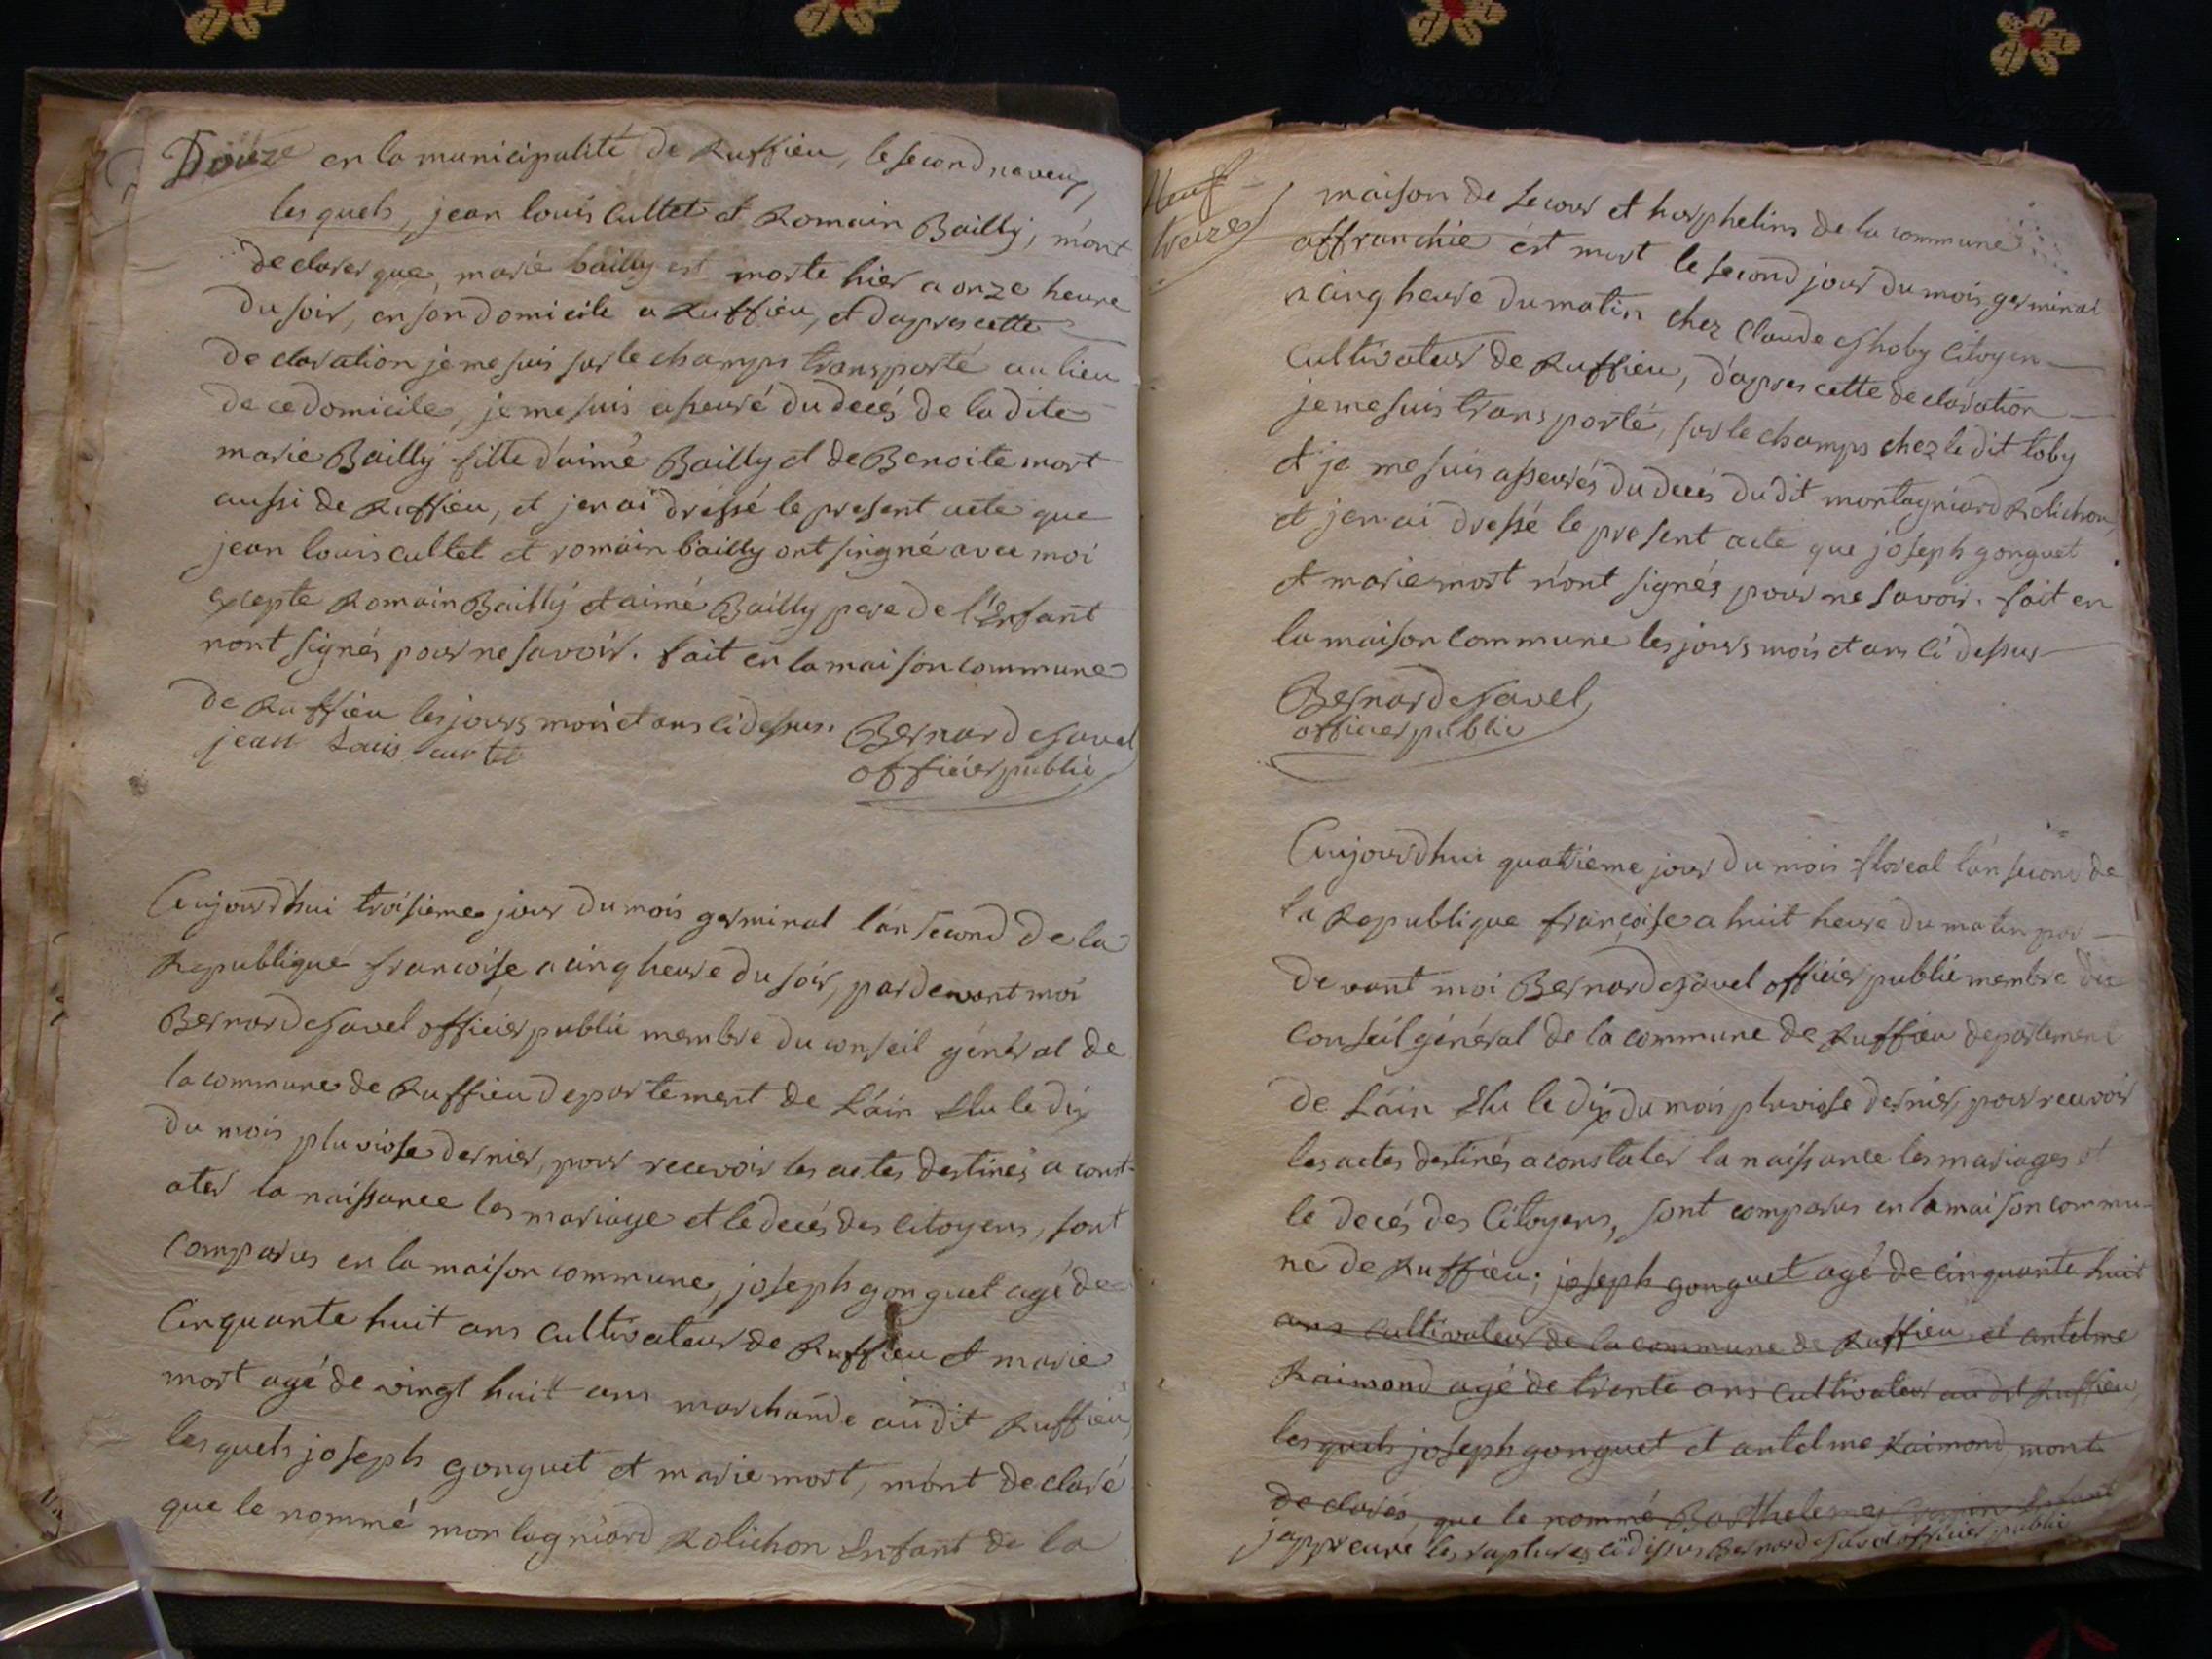 Douze
en la municipalité de Ruffieu, le second
les quels, jean louis Cultet et Romain Bailly, m'ont
declarer que, marie bailly est morte hier a onze heure
du soir, en son domicile a Ruffieu, et d'apres cette
declaration je me suis sur le champs transporté au lieu
de ce domicile, je me suis asseuré du decés de la dite
marie Bailly fille d'aimé Bailly et de Benoite mort
aussi de Ruffieu, et j'en ai dressé le present acte que
jean louis cultet et romain bailly ont singné avec moi
excepte Romain Bailly et aimé Bailly pere de l'Enfant
n'ont signés pour ne savoir. fait en la maison commune
de Ruffieu les jours mois et ans ci dessus. Bernard Savel
jean Louis curtet
officier public
Aujourd'hui troisieme jour du mois germinal l'an second de la
Republique francoise a cinq heure du soir, par devant moi
Bernard Savel officier public membre du conseil général de
la commune de Ruffieu departement de L'ain Elu le dix
du mois pluviose dernier, pour recevoir les actes destinés a const-
ater la naissance les mariage et le decés des Citoyens, sont
Comparus en la maison commune, joseph gonguet agé de
Cinquante huit ans Cultivateur de Ruffieu et marie
mort agé de vingt huit ans marchande au dit Ruffieu,
les quels joseph gonguet et marie mort, m'ont declaré
que le nommé montagniard Rolichon Enfant de la
Neuf
treize
maison de secour et horphelins de la commune
affranchie est mort le second jour du mois germinal
a cinq heure du matin chez Claude Citoyen
Cultivateur de Ruffieu, d'apres cette declaration
je me suis transporté, sur le champs chez le dit toby
et je me suis asseurés du decés du dit montagniard Rolichon,
et j'en ai dressé le present acte que joseph gonguet
et marie mort n'ont signés pour ne savoir. fait en
la maison Commune les jours mois et ans ci dessus
Bernard Savel
officier public
Aujourd'hui quatrieme jour du mois floreal l'an second de
la Republique françoise a huit heure du matin par
devant moi Bernard Savel officier public membre du
Conseil général de la commune de Ruffieu departement
de L'ain Elu le dix du mois pluviose dernier, pour recevoir
les actes destinés a constater la naissance les mariages et
le decés des Citoyens, sont comparus en la maison commu-
ne de Ruffieu; joseph gonguet agé de cinquante huit
ans cultivateur de la commune de Ruffieu et antelme
Raimond agé de trente ans cultivateur au dit Ruffieu,
les quels joseph gonguet et antelme Raimond m'ont
declarés, que le nommé Barthelemei Enfant
j'appreuve les ratures ci dessus Bernard Savel officier public